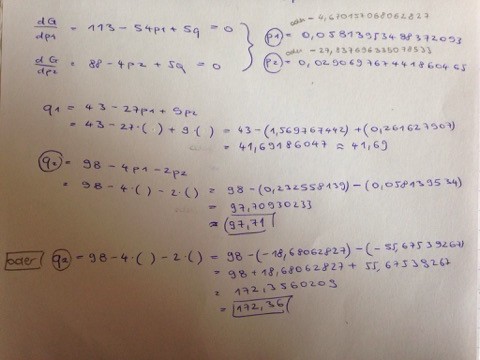 oder -4,670157068062827
dG/dp1 = 113 - 54p1 + 5q = 0
p1 = 0,05813953488372093
oder -27,837696335078533
dG/dp2 = 88 - 4p2 + 5q = 0
p2 = 0,029069767441860465
q1 = 43 - 27p1 + 9p2
= 43 - 27·( ) + 9·( ) = 43 - (1,569767442) + (0,261627907)
= 41,69186047 ≈ 41,69
q2 = 98 - 4p1 - 2p2
= 98 - 4·( ) - 2·( ) = 98 - (0,232558139) - (0,058139534)
= 97,70930233
≈ 97,71
oder q2 = 98 - 4·( ) - 2·( ) = 98 - (-18,68062827) - (-55,67539267)
= 98 + 18,68062827 + 55,67539267
= 172,3560209
= 172,36